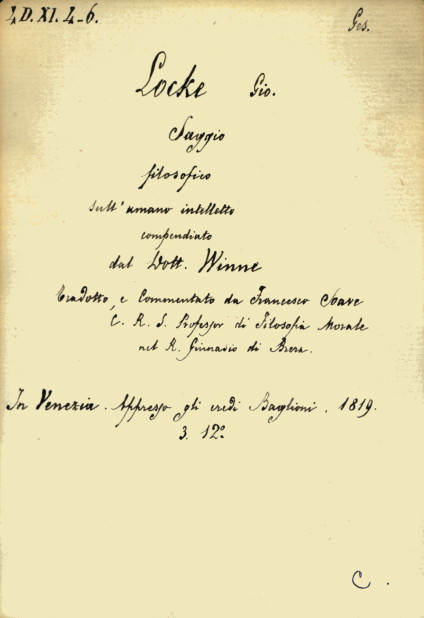 4 D. XI. 4-6.
Ges.
Locke Gio.
Saggio
filosofico
sull' umano intelletto
compendiato
dal Dott. Winne
Tradotto, e Commentato da Francesco Soave
C. R. S. Professor di Filosofia Morale
nel R. Ginnasio di Brera.
In Venezia. Appresso gli eredi Baglioni. 1819.
3. 12º
C.